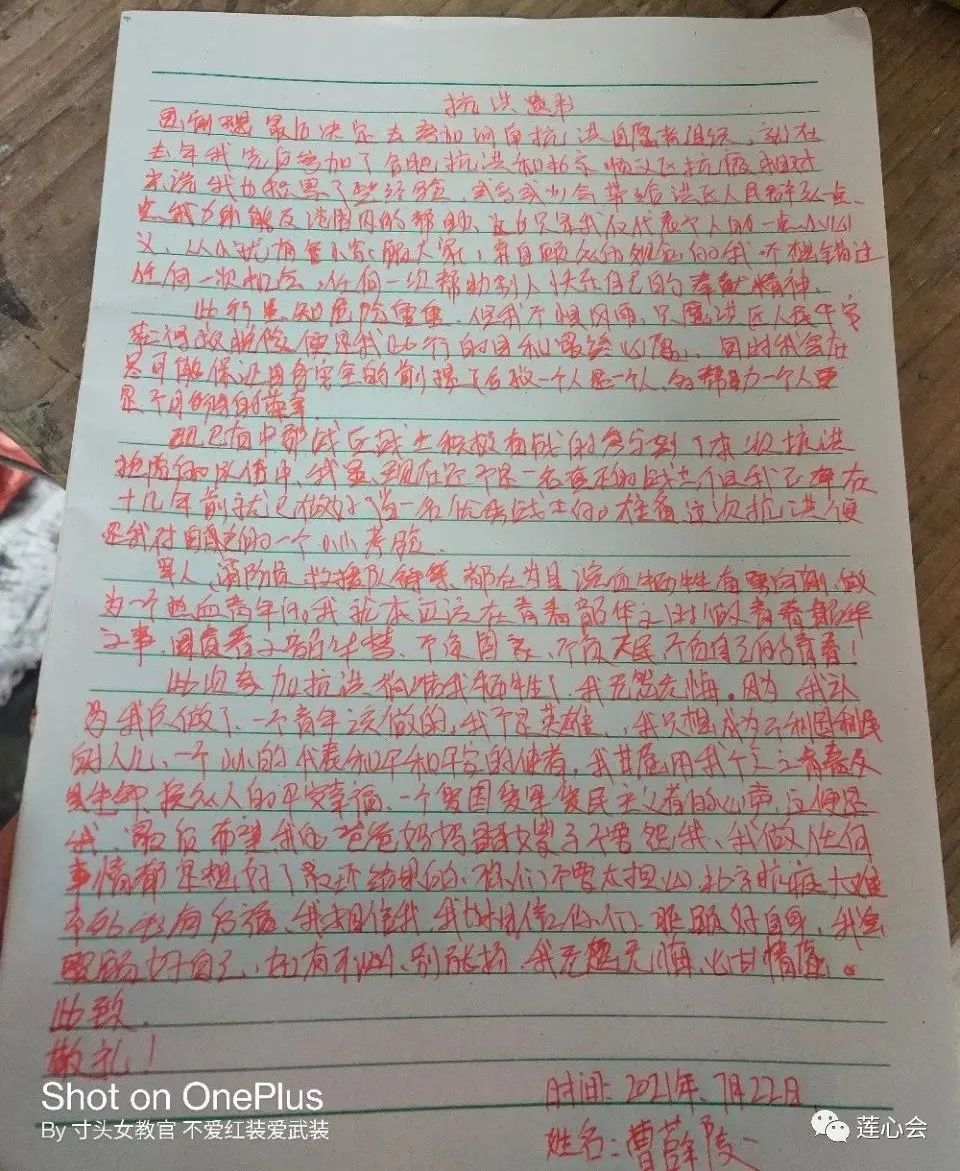 抗洪愿书
思前想后最后决定去参加河南抗洪自愿者组织、就在
去年我先后参加了合肥抗洪和北京顺义区抗疫相对
来说我也积累了些经验、或多或少会带给洪区人民群众一点
点我力所能及范围内的帮助、这也只是我仅代表个人的一点小心
义、从小就有舍小家顾大家,亲自顾众的观念的我不想错过
任何一次机会、任何一次帮助别人快乐自己的奉献精神、
此行虽知危险重重、但我不惧风雨、只愿洪区人民平安
获得救脱险便是我此行的目和最终心愿、同时我会在
尽可能保证自身安全的前提下去救一个人是一个人、的帮助一个人更
是不可
现已有中部战区战士积极有战的参与到了本次抗洪
的队伍中、我虽现在还不是一名真正的战士、但我已在
十几年前就已做好当一名优秀战士的准备这次抗洪便
是我对自己的一个小小考验、
军人、消防员、救援队等等都在为其流血牺牲奋勇向前、做
为一个热血青年的我就本应该在青春韶华之时做青春韶华
之事、圆青春之韶华梦、不负国家、不负人民、不负自己的青春!
此次参加抗洪我牺牲了、我无怨无悔。因为我认
为我只做了一个青年该做的、我不是英雄、我只想成为一利国利民
的人儿、一个小小的代表和平和平安的使者、我甘愿用我个之青春及
换众人的平安幸福、一个爱国爱军爱民主义者的心声、这便是
我、最后希望我的爸爸妈妈妻子不要怨我、我做任何
事情都是想好了最坏结果的、你们不要太担心、北京抗疫大难
不死必有后福、我相信我、我也相信你们、照顾好自身、我会
照顾好自己、如有不测、别张扬、我无怨无悔、心甘情愿。
此致、
敬礼!
时间:2021年、7月22日
姓名:曹
Shot on OnePlus
By 寸头女教官 不爱红装爱武装
莲心会